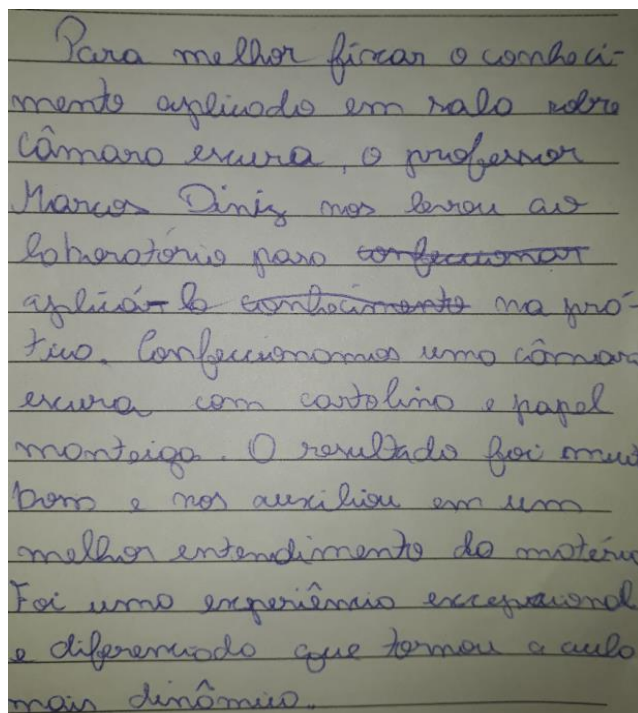 Para melhor fixar o conheci-
mento aplicado em sala sobre
câmara escura, o professor
Marcos Diniz nos levou ao
laboratório para confeccionar
aplicá-lo conhecimento na prá-
tica. Confeccionamos uma câmara
escura com cartolina e papel
manteiga. O resultado foi muito
bom e nos auxiliou em um
melhor entendimento da matéria
Foi uma experiência excepcional
e diferenciada que tornou a aula
mais dinâmica.